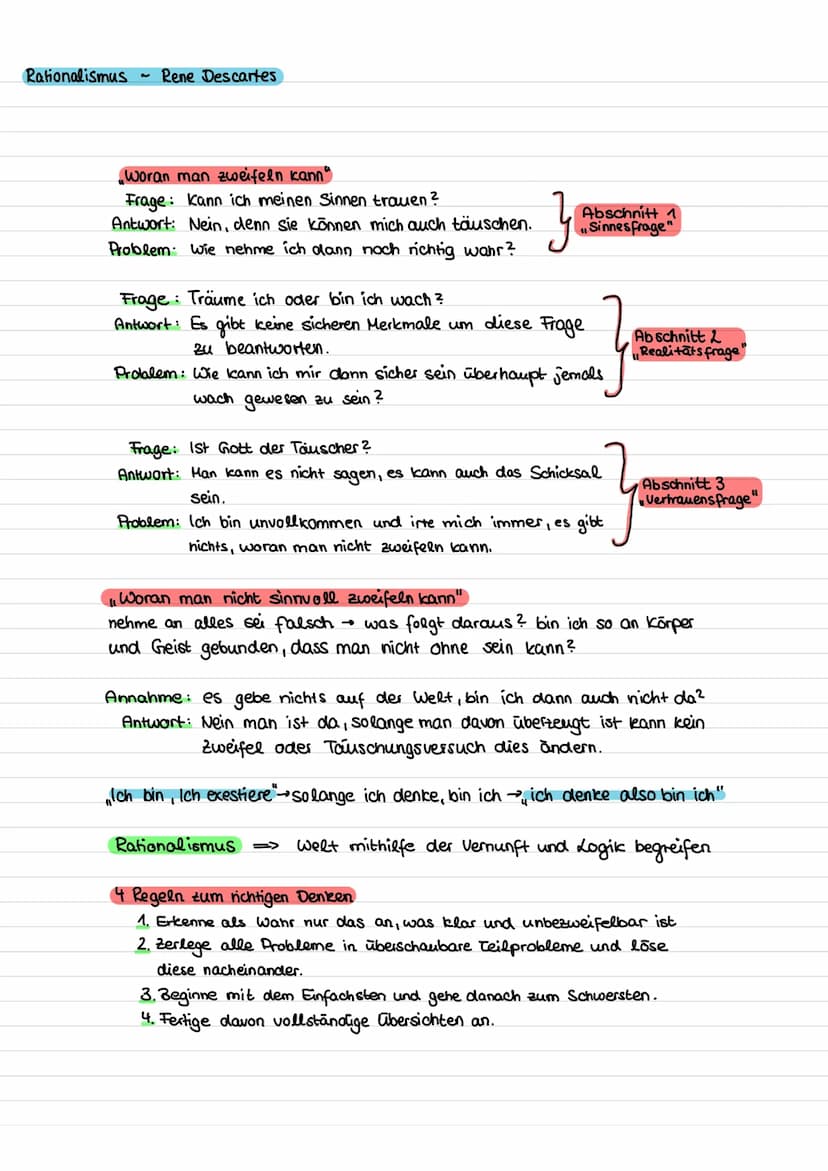 Rationalismus ~ Rene Descartes
„Woran man zweifeln kann"
Frage: Kann ich meinen Sinnen trauen?
Antwort: Nein, denn sie können mich auch täuschen.
Problem: Wie nehme ich dann noch richtig wahr?
Abschnitt 1
„Sinnesfrage"
Frage: Träume ich oder bin ich wach?
Antwort: Es gibt keine sicheren Merkmale um diese Frage
zu beantworten.
Problem: Wie kann ich mir dann sicher sein überhaupt jemals
wach gewesen zu sein?
Abschnitt 2
„Realitätsfrage"
Frage: Ist Gott der Täuscher?
Antwort: Man kann es nicht sagen, es kann auch das Schicksal
sein.
Problem: Ich bin unvollkommen und irre mich immer, es gibt
nichts, woran man nicht zweifeln kann.
Abschnitt 3
„Vertrauensfrage"
„Woran man nicht sinnvoll zweifeln kann"
nehme an alles sei falsch → was folgt daraus? bin ich so an Körper
und Geist gebunden, dass man nicht ohne sein kann?
Annahme: es gebe nichts auf der Welt, bin ich dann auch nicht da?
Antwort: Nein man ist da, solange man davon überzeugt ist kann kein
Zweifel oder Täuschungsversuch dies ändern.
„Ich bin, Ich exestiere" → solange ich denke, bin ich → „ich denke also bin ich"
Rationalismus ⇒ Welt mithilfe der Vernunft und Logik begreifen
4 Regeln zum richtigen Denken
1. Erkenne als Wahr nur das an, was klar und unbezweifelbar ist
2. Zerlege alle Probleme in überschaubare Teilprobleme und löse
diese nacheinander.
3. Beginne mit dem Einfachsten und gehe danach zum Schwersten.
4. Fertige davon vollständige Übersichten an.